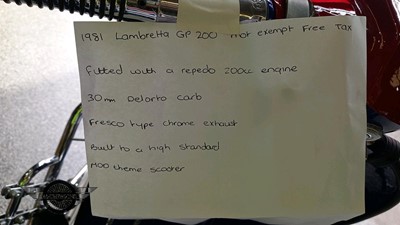 1981 Lambretta GP 200 mot exempt Free Tax
Fitted with a repedo 200cc engine
30mm Delorto carb
Fresco type chrome exhaust
Built to a high standed
MOD theme scooter